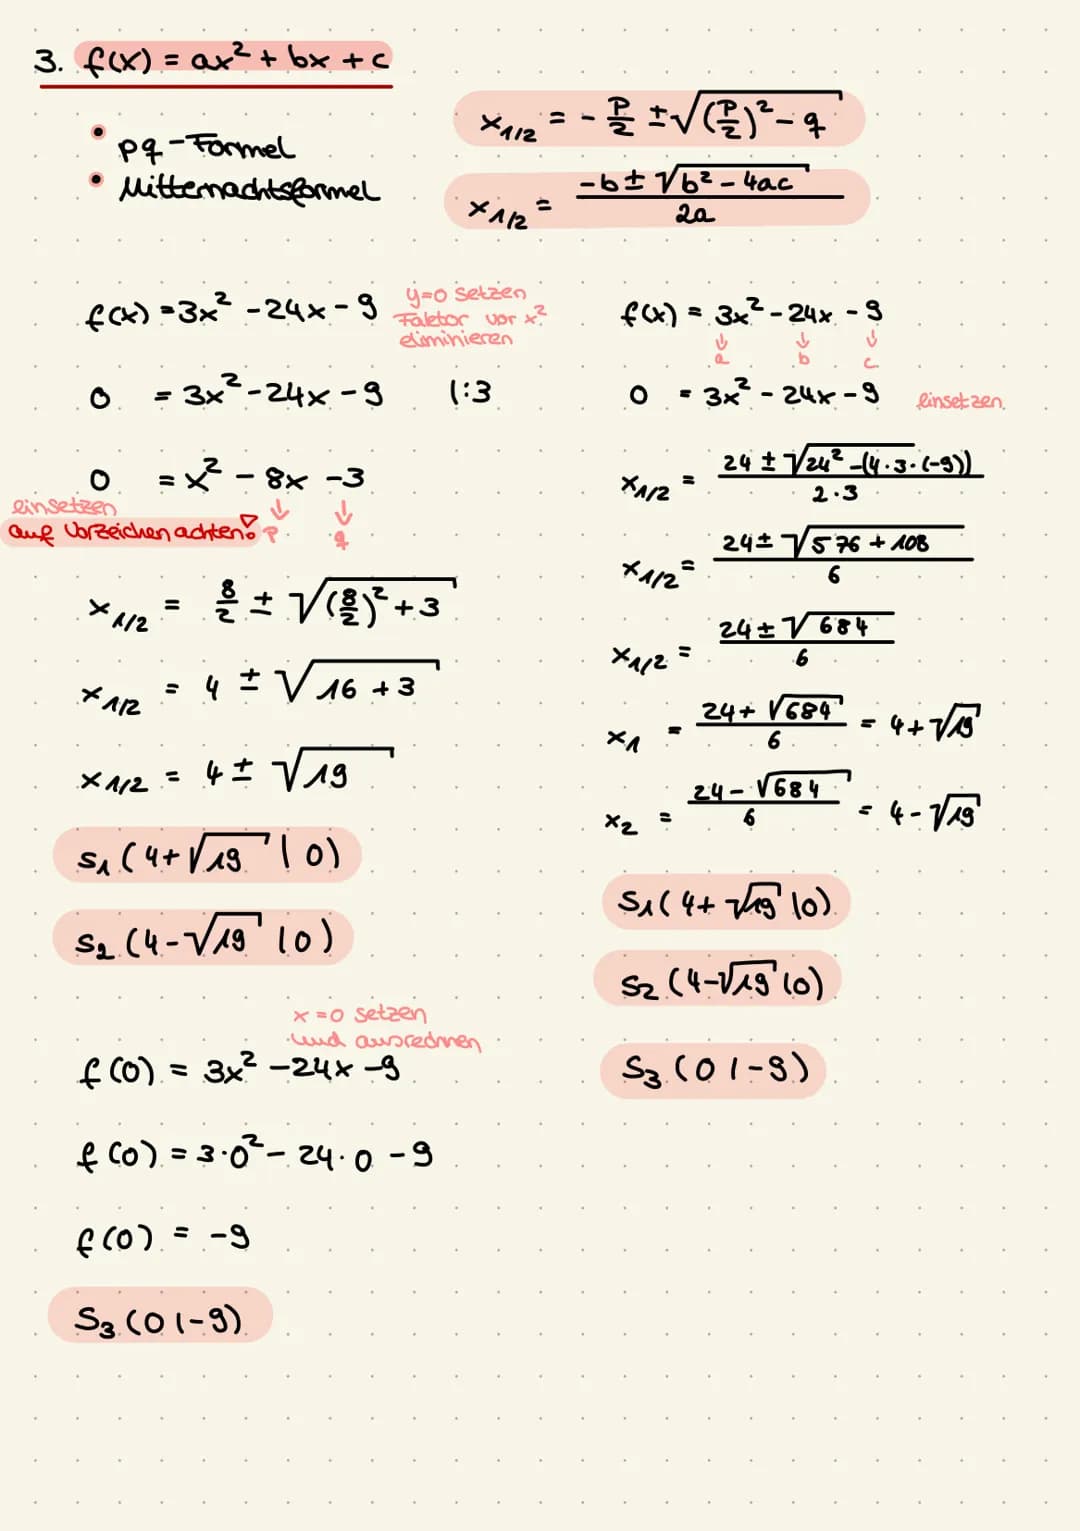 3. f(x) = ax² + bx + c
• pq-Formel
x₁/₂ = - p/2 ± √((p/2)² - q)
• Mitternachtsformel
x₁/₂ = (-b ± √(b² - 4ac))/2a
f(x) = 3x² - 24x - 9
y=0 setzen
Faktor vor x²
eliminieren
0 = 3x² - 24x - 9 |:3
0 = x² - 8x - 3
↓ ↓
einsetzen
auf Vorzeichen achten! p q
x₁/₂ = 8/2 ± √((8/2)² + 3)
x₁/₂ = 4 ± √(16 + 3)
x₁/₂ = 4 ± √19
S₁ (4 + √19 | 0)
S₂ (4 - √19 | 0)
x = 0 setzen
und ausrechnen
f(0) = 3x² - 24x - 9
f(0) = 3·0² - 24·0 - 9
f(0) = -9
S₃ (0 | -9)
f(x) = 3x² - 24x - 9
↓ ↓ ↓
a b c
0 = 3x² - 24x - 9 einsetzen
x₁/₂ = (24 ± √(24² - (4·3·(-9))))/2·3
x₁/₂ = (24 ± √(576 + 108))/6
x₁/₂ = (24 ± √684)/6
x₁ = (24 + √684)/6 = 4 + √19
x₂ = (24 - √684)/6 = 4 - √19
S₁ (4 + √19 | 0)
S₂ (4 - √19 | 0)
S₃ (0 | -9)